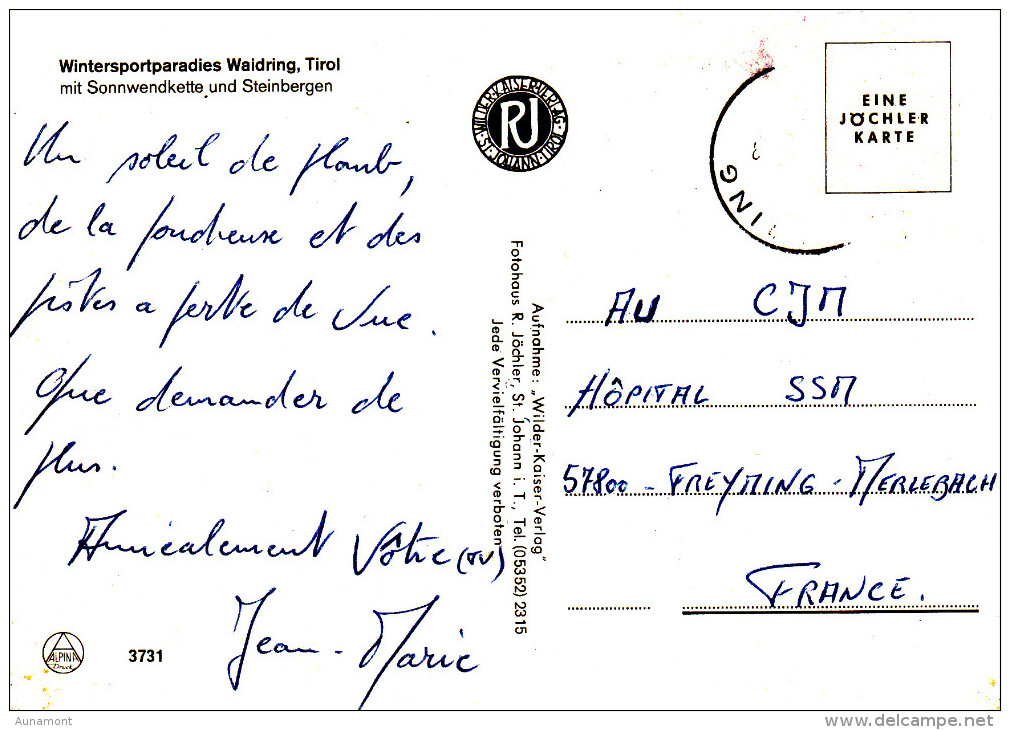 Wintersportparadies Waidring, Tirol
mit Sonnwendkette und Steinbergen
Un soleil de plomb,
de la poudreuse et des
pistes a perte de vue.
Que demander de
plus.
Amicalement Vôtre (TV)
Jean-Marie
ALPINA
Druck
3731
WILDER-KAISER-VERLAG
ST. JOHANN-TIROL
RJ
Aufnahme: „Wilder-Kaiser-Verlag"
Fotohaus R. Jöchler, St. Johann i. T., Tel. (05352) 2315
Jede Vervielfältigung verboten
ING
EINE
JÖCHLER
KARTE
AU CJM
HÔPITAL SSM
57800 - FREYMING - MERLEBACH
FRANCE.
Aunamont
delcampe.net